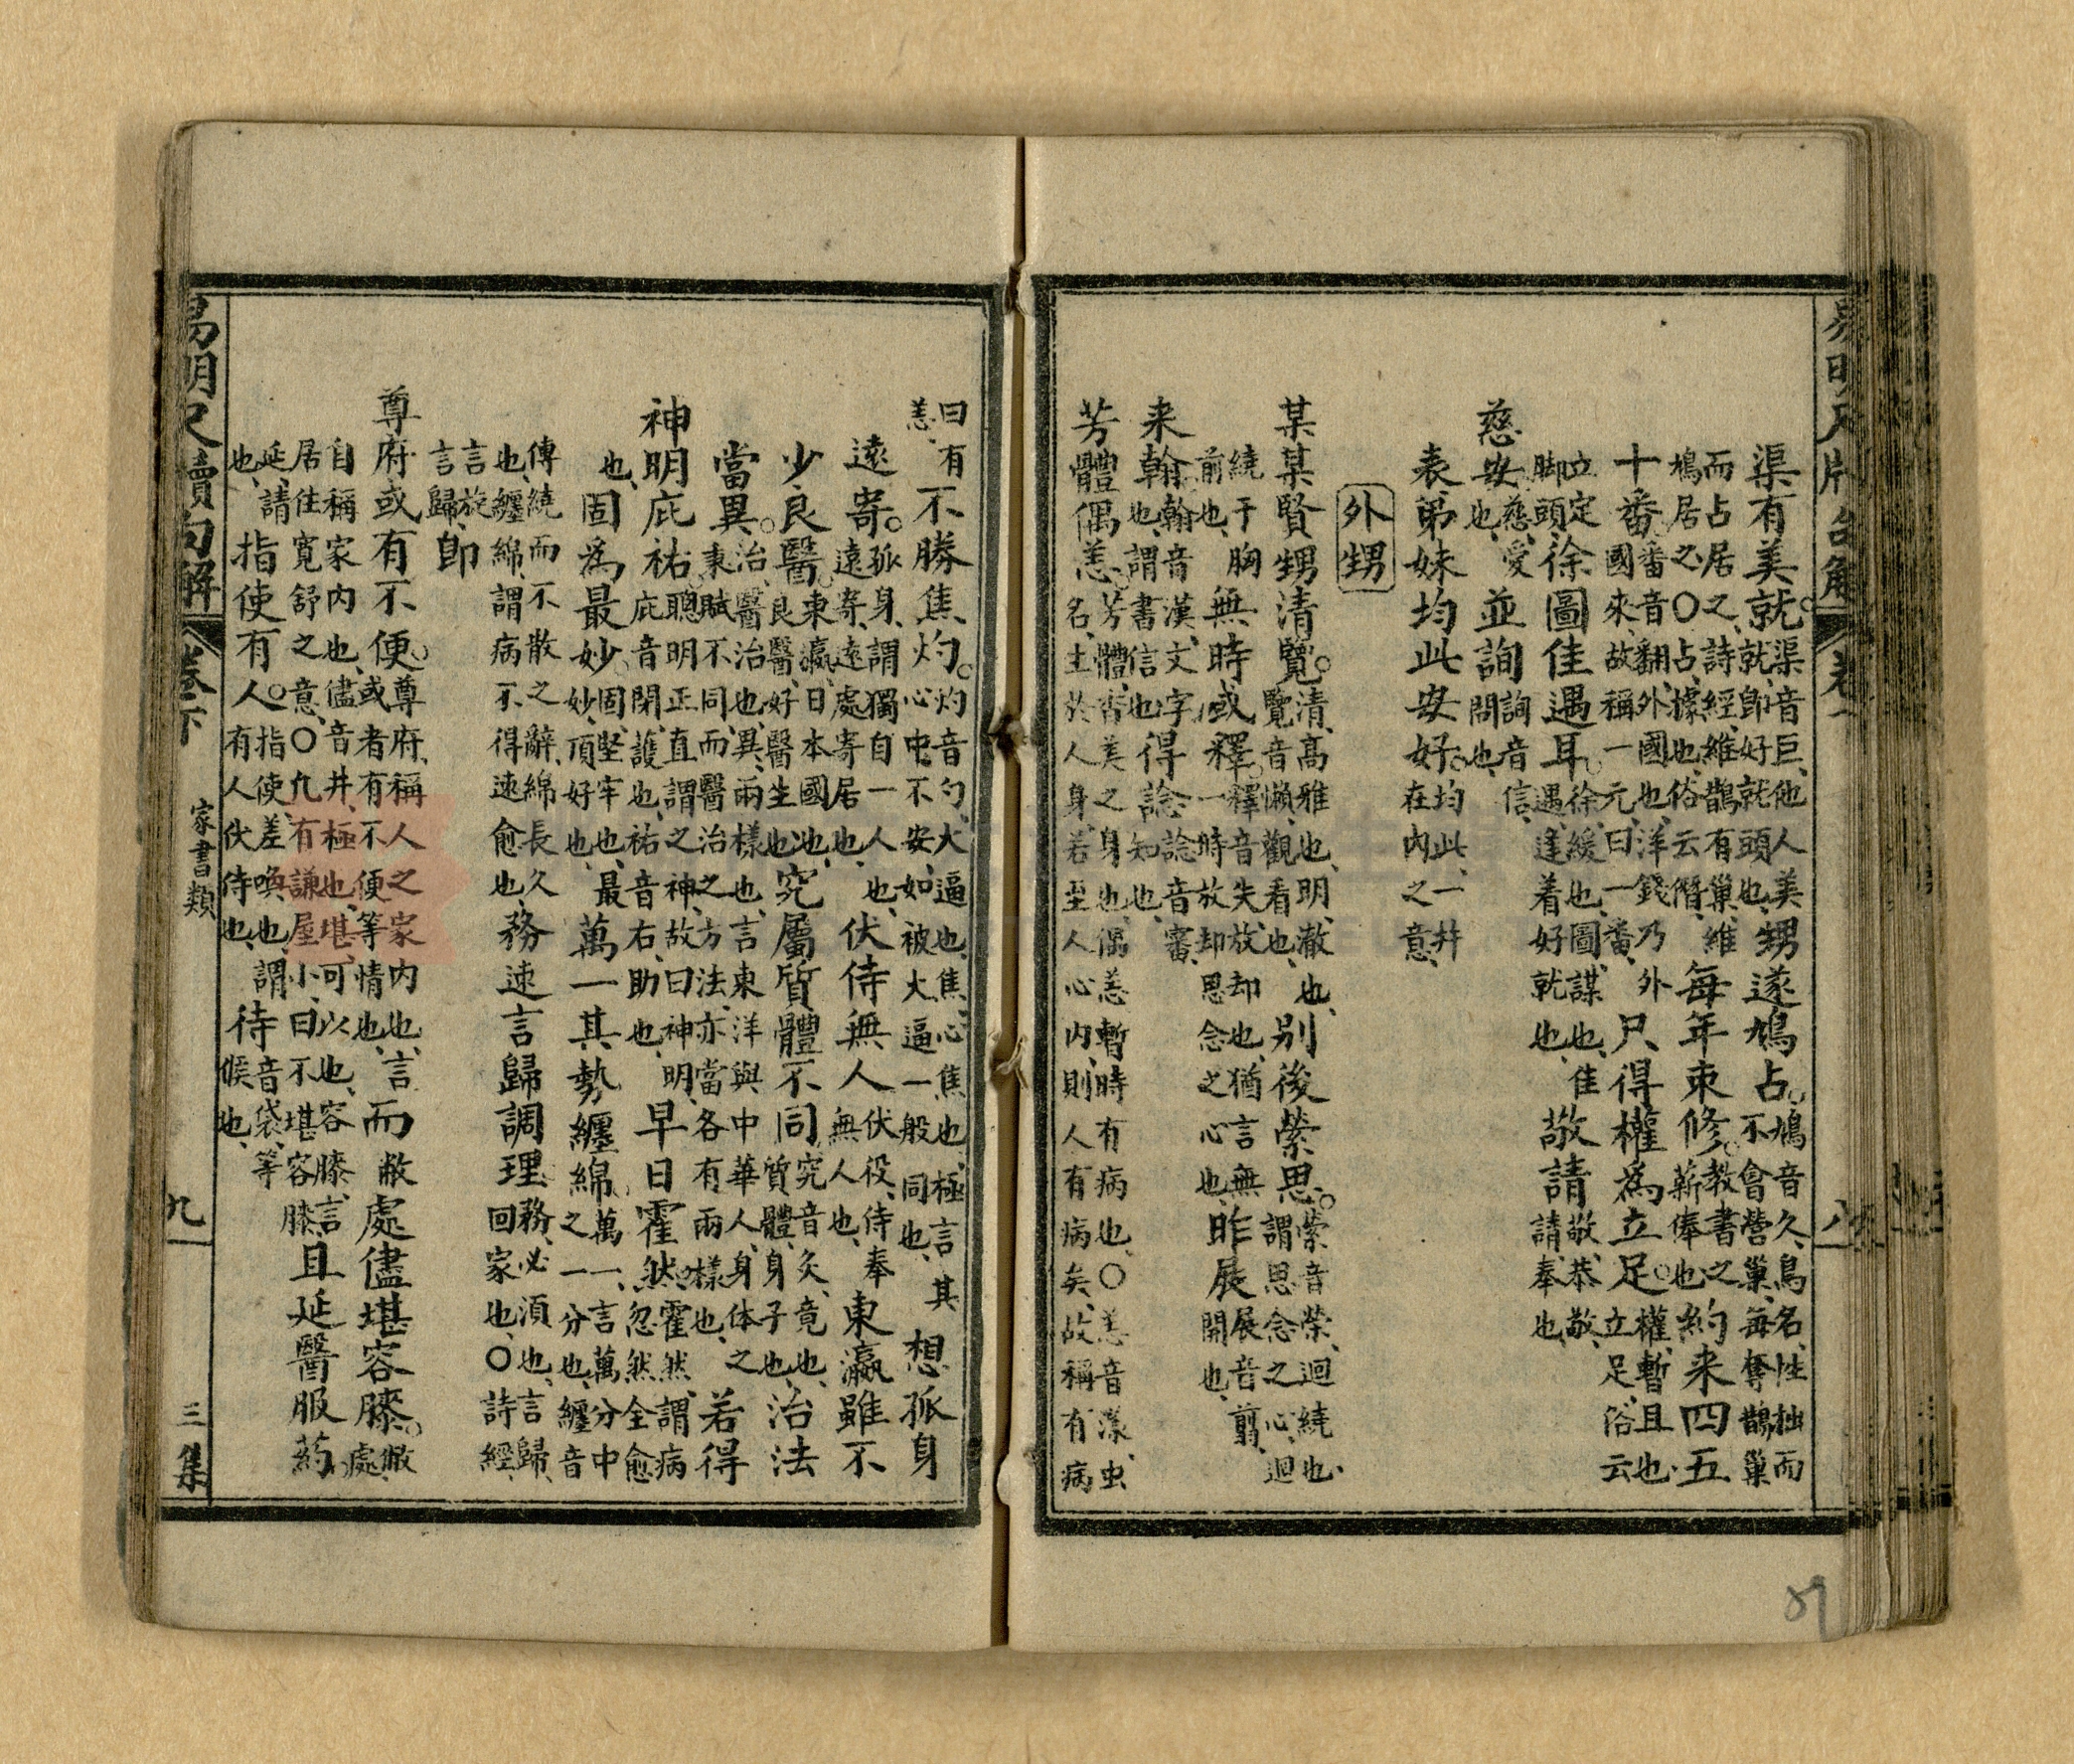 渠有美就。渠音巨、他人美
就、即好就頭也、甥遂鳩占。鳩音久、鳥名、性拙而
不會營巢、每奪鵲巢
而占居之、詩經、維鵲有巢、維
鳩居之、〇占、據也、俗云僭、每年束修。教書之
薪俸也、約来四五
十番。番音翻、外國也、洋錢乃外
國來、故稱一元、曰一番、只得權為立足。權、暫且也、
立足、俗云
立定
脚頭、徐圖佳遇耳。徐、緩也、圖、謀也、佳
遇、逢着好就也、敬請敬、恭敬、
請、奉也、
慈安慈、愛
也、並詢詢音信、
問也、
表弟妹均此安好。均此、一并
在內之意、
外甥
某某賢甥清覽。清、高雅也、明澈也、
覽音懶、觀看也、別後縈思。縈音縈、迴繞也、
謂思念之心、迴
繞于胸
前也、無時或釋。釋音失、放却也、猶言無
一時放却思念之心也、昨展展音翦、
開也、
来翰翰音漢、文字也、
也、謂書信也、得諗諗音審、
知也、
芳體偶恙。芳體、香美之身也、偶恙、暫時有病也、〇恙音漾、虫
名、土於人身、若至人心内、則人有病矣、故稱有病
曰有
恙、不勝焦灼。灼音勺、火逼也、焦、心焦也、極言其
心中不安、如被火逼一般同也、想孤身
遠寄。孤身、謂獨自一人也、
遠寄、遠處寄居也、伏侍無人伏役、侍奉
無人也、東瀛雖不
少良醫。東瀛、日本國也、
良醫、好醫生也、究屬質體不同究音灸、竟也、
質體、身子也、治法
當異。治、醫治也、異、兩樣也、言東洋與中華人身体之
秉賦不同、而醫治之方法、亦當各有兩樣也、若得
神明庇祐。聰明正直、謂之神、故曰神明、
庇音閉、護也、祐音右、助也、早日霍然。霍然、謂病
忽然全愈
也、固為最妙。固、堅牢也、最
妙、頂好也、萬一其勢纏綿。萬一、言萬分中
之一分也、纏音
傳繞而不散之辭、綿、長久
也、纏綿、謂病不得速愈也、務速言歸調理。務、必須也、言歸、
回家也、〇詩經、
言放
言歸、即
尊府或有不便。尊府、稱人之家内也、言
或者有不便等情也、而敝處儘堪容膝。敝處、
自稱家内也、儘音井、極也、堪、可以也、容膝、言
居住寬舒之意、〇凡有謙屋小、曰不堪容膝、且延醫服葯
延、請
也、指使有人。指使、差喚也、謂
有人伏侍也、待音袋、等
候也、
易明尺牘句解 卷下 家書類 九 三集